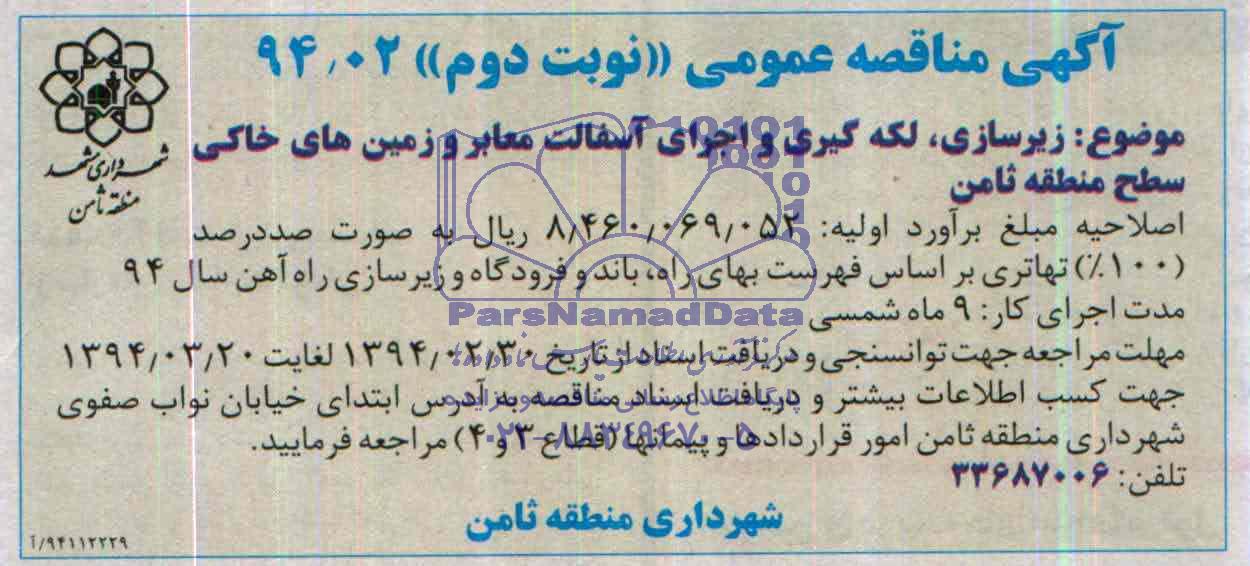 آگهی مناقصه عمومی «نوبت دوم» ۹۴٫۰۲
شهرداری مشهد
منطقه ثامن
موضوع: زیرسازی، لکه گیری و اجرای آسفالت معابر و زمین های خاکی
سطح منطقه ثامن
اصلاحیه مبلغ برآورد اولیه: ۸٫۴۶۰٫۰۶۹٫۰۵۲ ریال به صورت صددرصد
(۱۰۰٪) تهاتری بر اساس فهرست بهای راه، باند و فرودگاه و زیرسازی راه آهن سال ۹۴
مدت اجرای کار: ۹ ماه شمسی
مهلت مراجعه جهت توانسنجی و دریافت اسناد از تاریخ ۱۳۹۴٫۰۲٫۳۰ لغایت ۱۳۹۴٫۰۳٫۲۰
جهت کسب اطلاعات بیشتر و دریافت اسناد مناقصه به آدرس ابتدای خیابان نواب صفوی
شهرداری منطقه ثامن امور قراردادها و پیمانها (قطاع ۳ و ۴) مراجعه فرمایید.
تلفن: ۳۳۶۸۷۰۰۶
شهرداری منطقه ثامن
۹۴۱۱۲۲۲۹/آ
ParsNamadData
۰۲۱-۸۸۳۴۹۶۷۰-۵